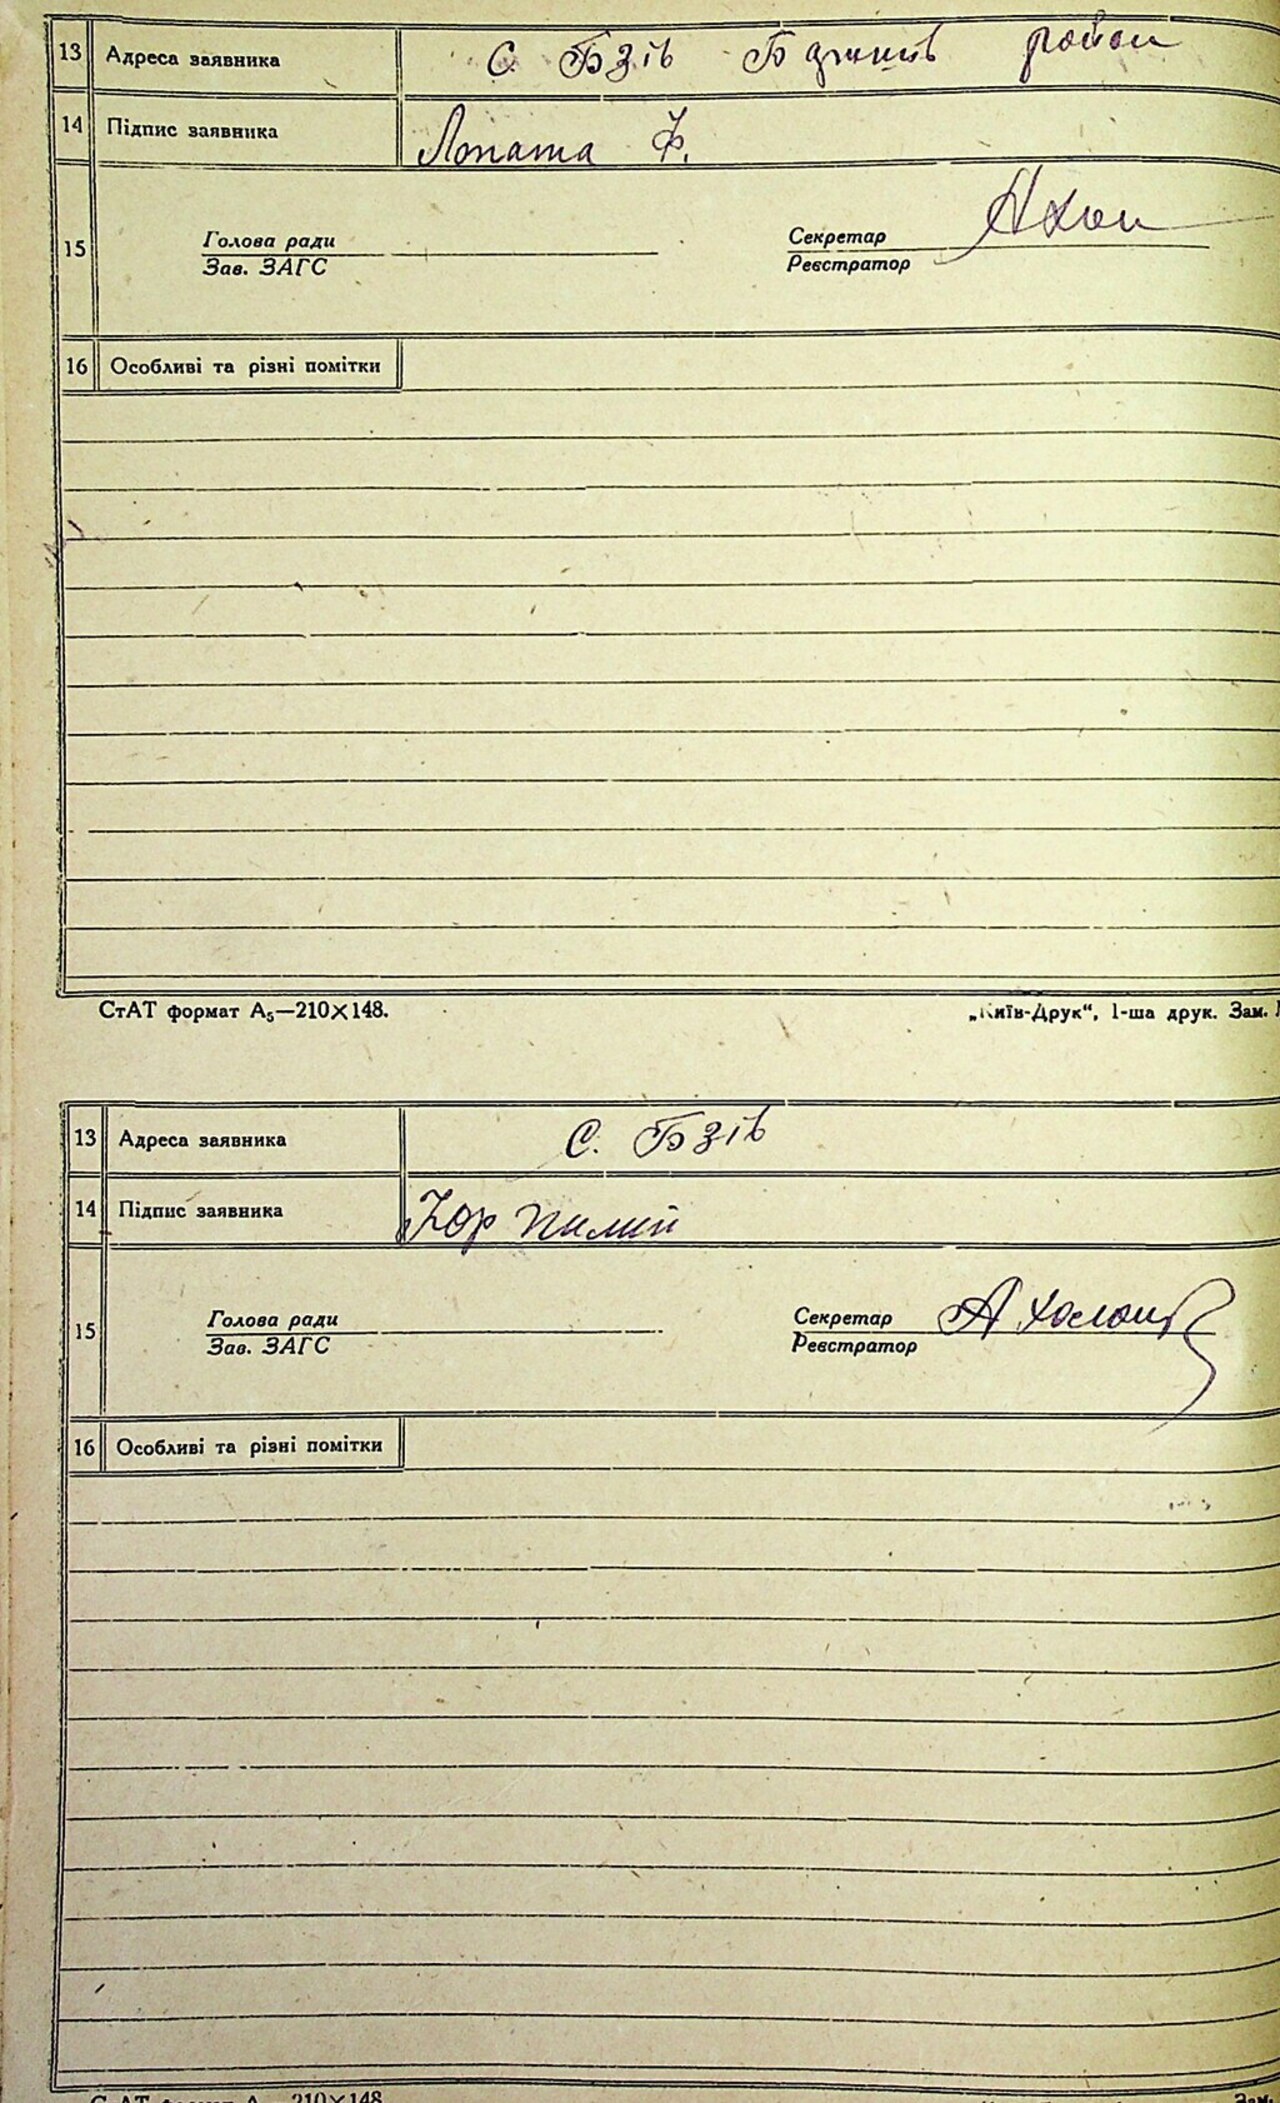 13 Адреса заявника с. Бзів район
14 Підпис заявника Лопата Ф.
Голова ради Секретар
15
Зав. ЗАГС Реєстратор
16 Особливі та різні помітки
СтАТ формат А₅—210×148. „Київ-Друк“, 1-ша друк. Зам.
13 Адреса заявника с. Бзів
14 Підпис заявника
Голова ради Секретар
15
Зав. ЗАГС Реєстратор
16 Особливі та різні помітки
СтАТ формат А 210×148 Зам.